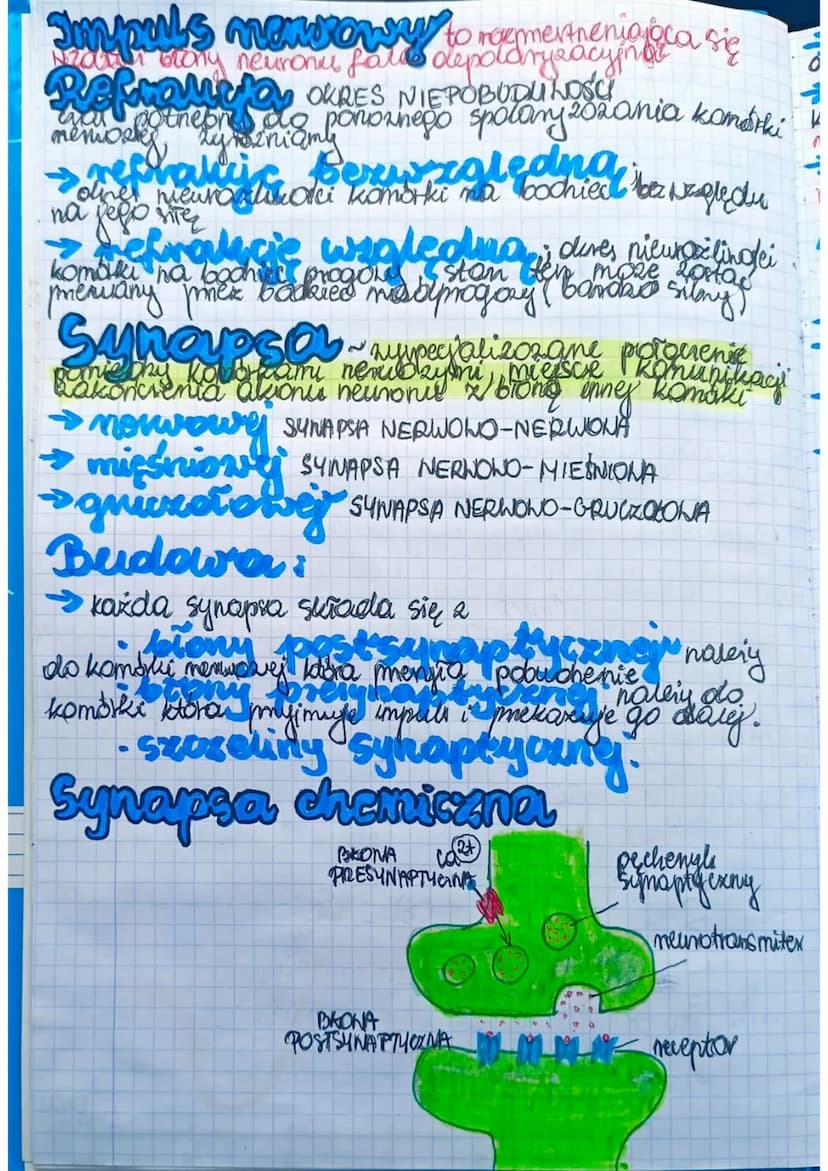 Impuls nerwowy to rozprzestrzeniająca się
wzdłuż błony neuronu fala depolaryzacyjna
Refrakcja OKRES NIEPOBUDLIWOŚCI
czas potrzebny do ponownego spolaryzowania komórki
nerwowej, wyróżniamy
→ refrakcję bezwzględną;
okres niewrażliwości komórki na bodziec bez względu
na jego siłę
→ refrakcję względną; okres niewrażliwości
komórki na bodziec progowy, stan ten może zostać
przerwany przez bodziec nadprogowy (bardzo silny)
Synapsa ~ wyspecjalizowane połączenie
pomiędzy komórkami nerwowymi, miejsce komunikacji
zakończenia aksonu neuronu z błoną innej komórki
→ nerwowej SYNAPSA NERWOWO-NERWOWA
→ mięśniowej SYNAPSA NERWOWO-MIĘŚNIOWA
→ gruczołowej SYNAPSA NERWOWO-GRUCZOŁOWA
Budowa:
→ każda synapsa składa się z
· błony postsynaptycznej należy
do komórki nerwowej która przesyła pobudzenie
· błony presynaptycznej należy do
komórki która przyjmuje impuls i przekazuje go dalej.
· szczeliny synaptycznej.
Synapsa chemiczna
BŁONA
PRESYNAPTYCZNA
Ca 2+
pęcherzyk
synaptyczny
neurotransmiter
BŁONA
POSTSYNAPTYCZNA
receptor